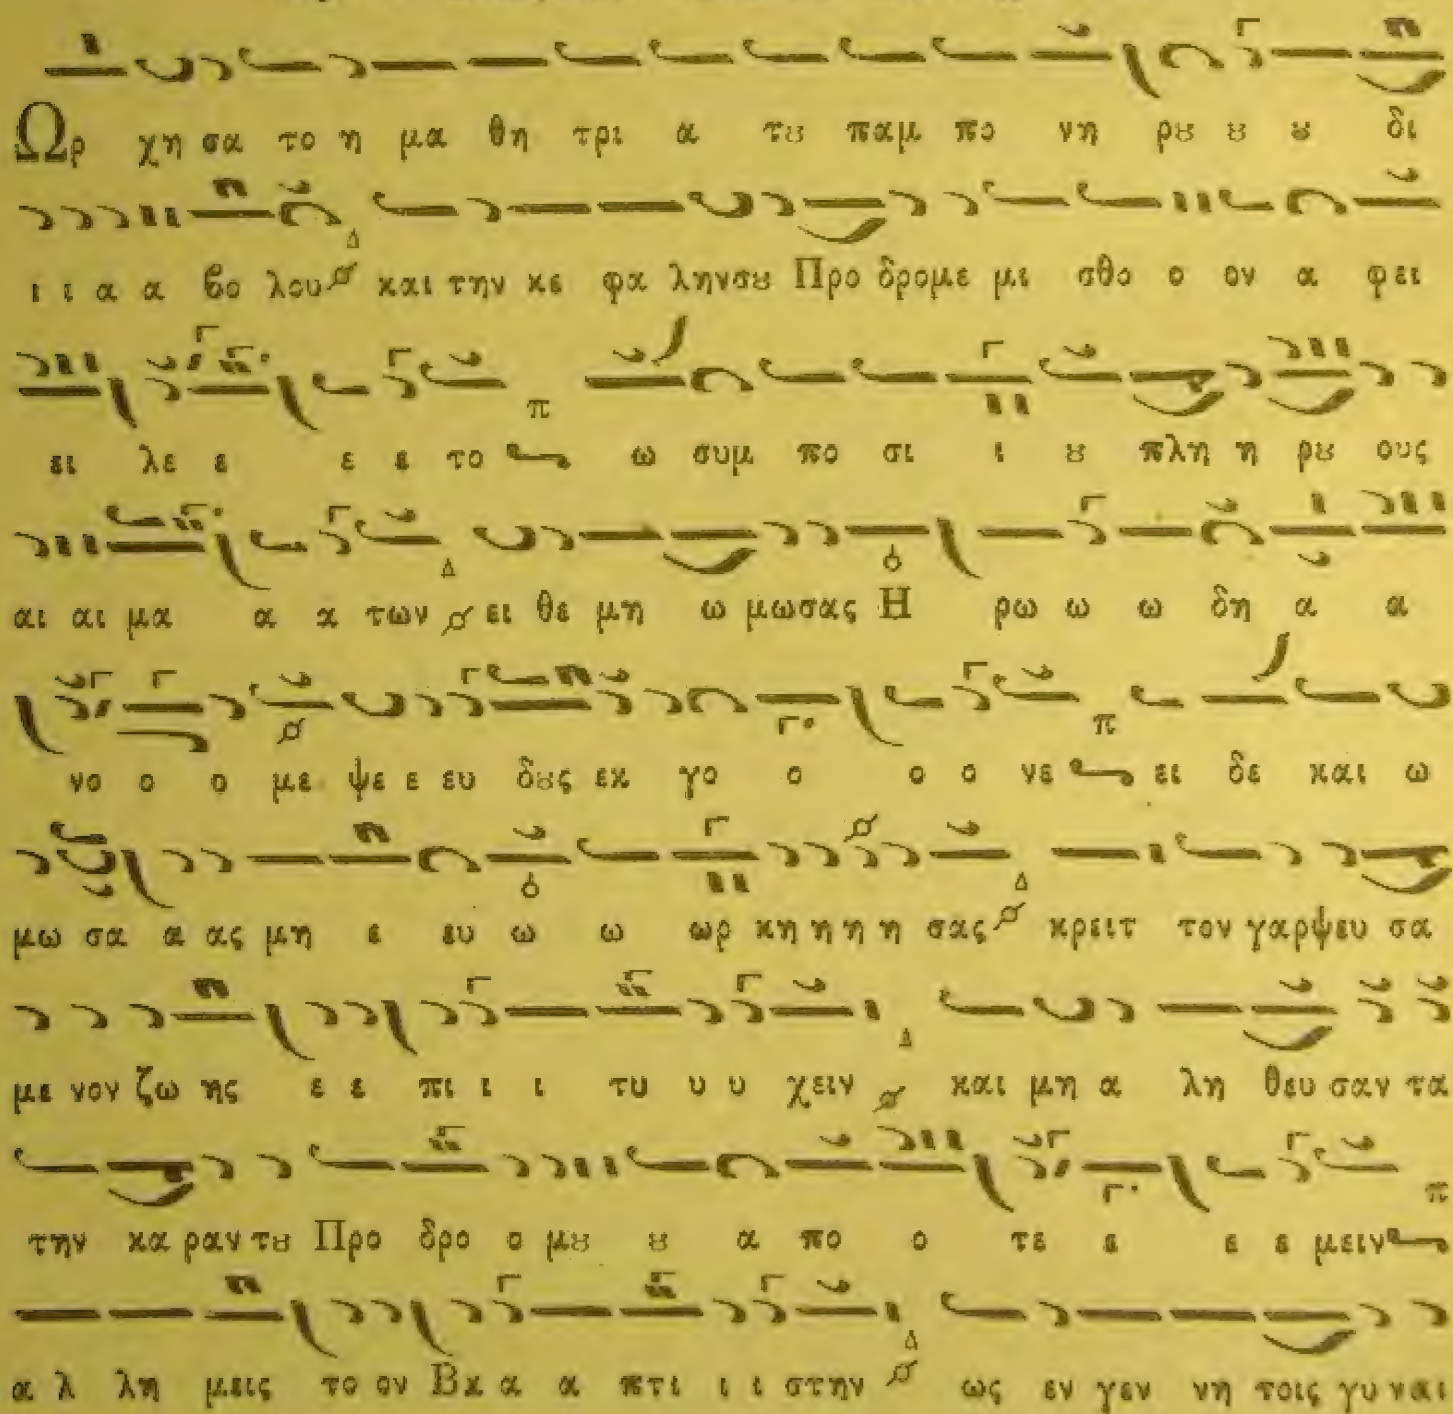 Ωρ χη σα το η μα θη τρι α τȣ παμ πο νη ρȣ ȣ ȣ δι
ι ι α α βο λου και την κε φα λην σȣ Προ δρομε μι σθο ο ον α φει
ει λε ε ε ε το ω συμ πο σι ι ȣ πλη η ρȣ ους
αι αι μα α α των ει θε μη ω μωσας Η ρω ω ω δη α α
νο ο ο με ψε ε ευ δȣς εκ γο ο ο ο νε ει δε και ω
μω σα α ας μη ε ευ ω ω ωρ κη η η η σας κρειτ τον γαρ ψευ σα
με νον ζω ης ε ε πι ι ι τυ υ υ χειν και μη α λη θευ σαν τα
την κα ραν τȣ Προ δρο ο μȣ ȣ α πο ο τε ε ε ε μειν
α λ λη μεις το ον Βα α α πτι ι ι στην ως εν γεν νη τοις γυ ναι